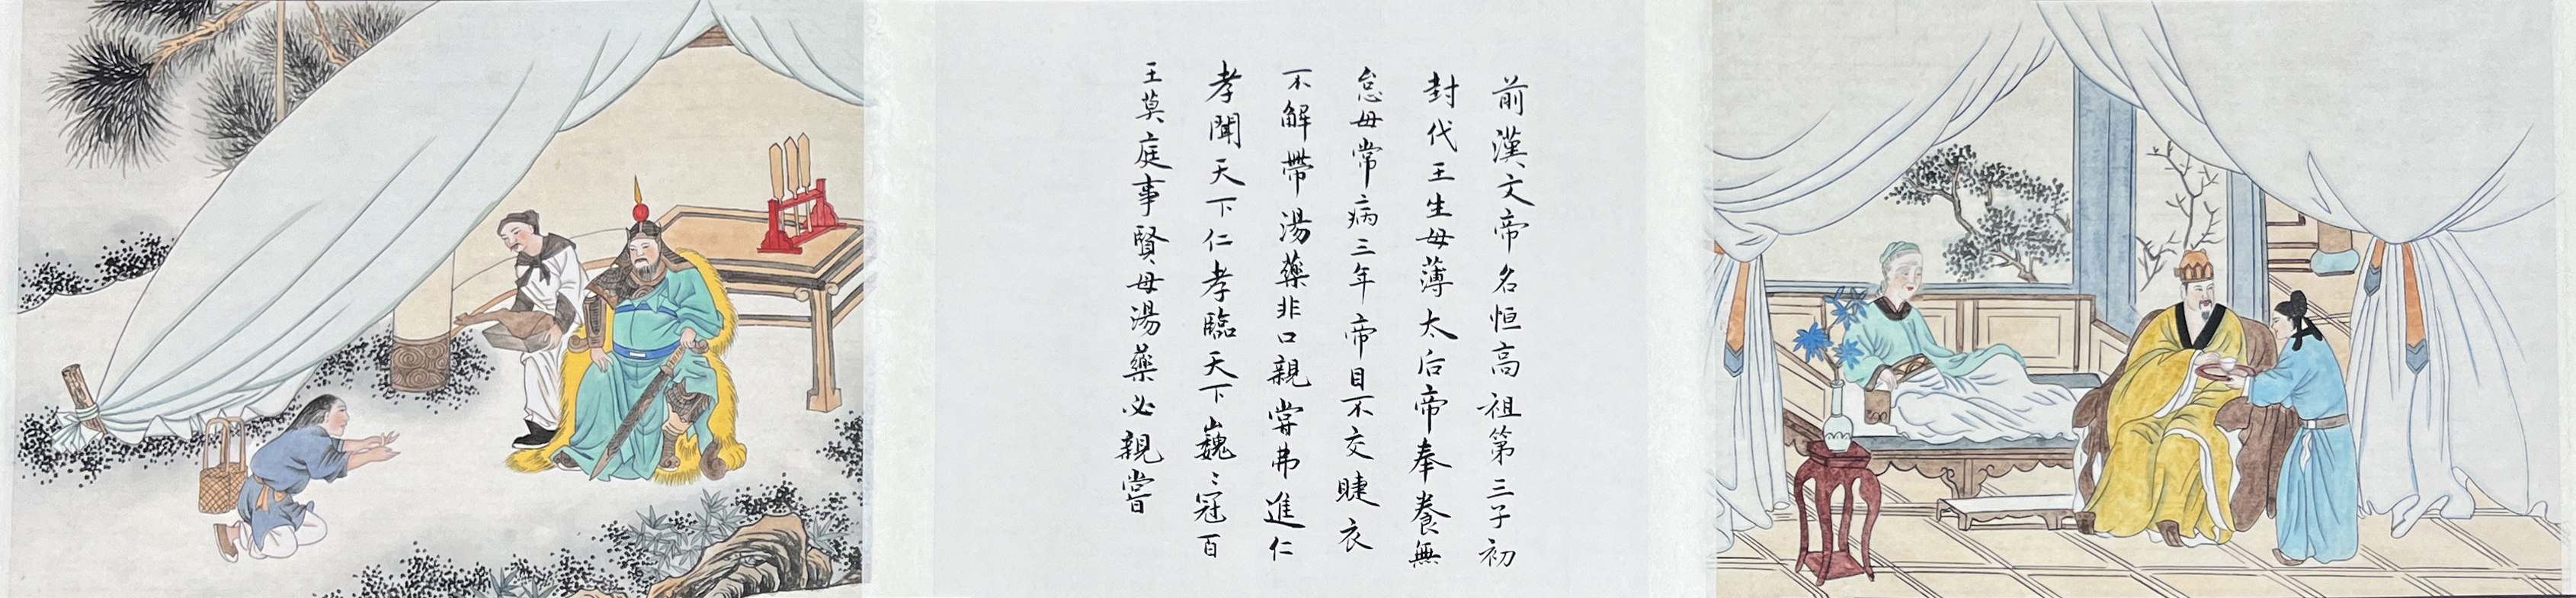 前漢文帝名恒高祖第三子初
封代王生母薄太后帝奉養無
怠母常病三年帝目不交睫衣
不解帶湯藥非口親嘗弗進仁
孝聞天下仁孝臨天下巍〻冠百
王莫庭事賢母湯藥必親嘗